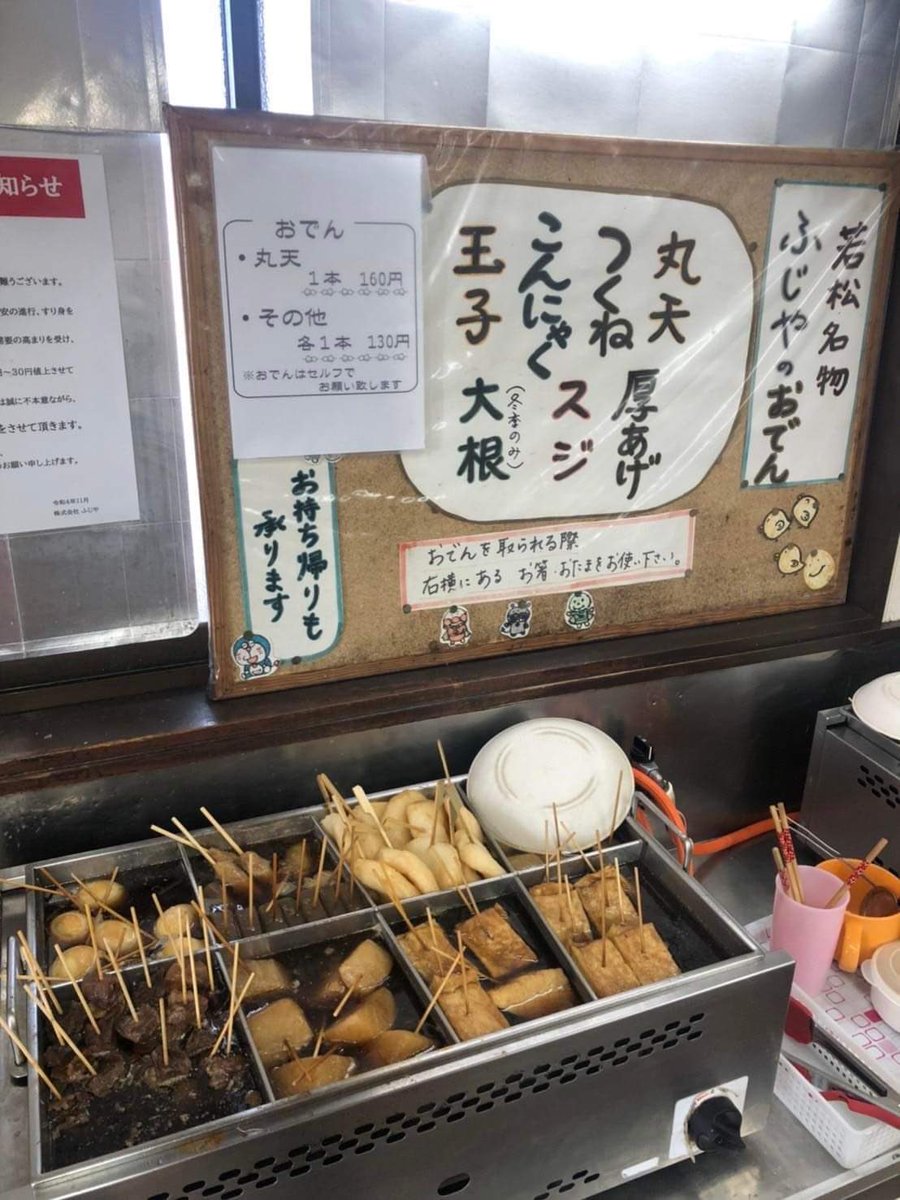 知らせ
難うございます。
安の進行、すり身を
需要の高まりを受け、
円～30円値上させて
は誠に不本意ながら、
をさせて頂きます。
お願い申し上げます。
令和4年11月
株式会社 ふじや
おでん
・丸天
1本 160円
・その他
各1本 130円
※おでんはセルフで
お願い致します
お持ち帰りも
承ります
丸天
つくね
こんにゃく
玉子
厚あげ
スジ
(冬季のみ)
大根
若松名物
ふじやのおでん
おでんを取られる際
右横にある お箸・おたまをお使い下さい。